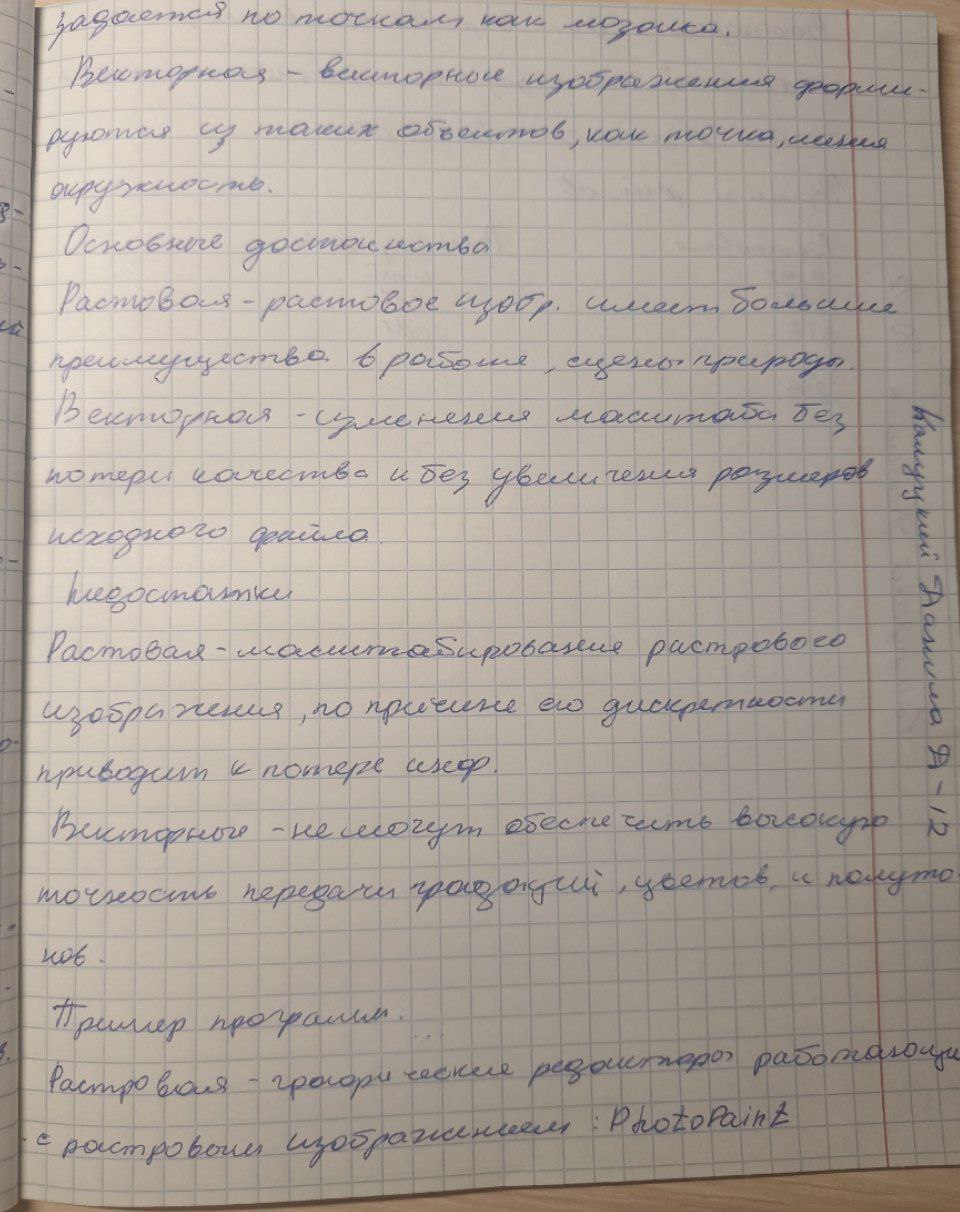 задается по точкам как мозаика.
Векторная - векторные изображения форми-
руются из таких объектов, как точка, линия
окружность.
Основные достоинства
Растовая - растовое изобр. имеет большие
преимущества в работе, сцены природы.
Векторная - изменения масштаба без
потери качества и без увеличения размеров
исходного файла.
Недостатки
Растовая - масштабирование растрового
изображения, по причине его дискретности
приводит к потере инф.
Векторные - не могут обеспечить высокую
точность передачи градаций, цветов, и полуто
нов.
Пример программ.
Растровая - графические редакторы работающи
с растровым изображением : PhotoPaint
Данила Д-12